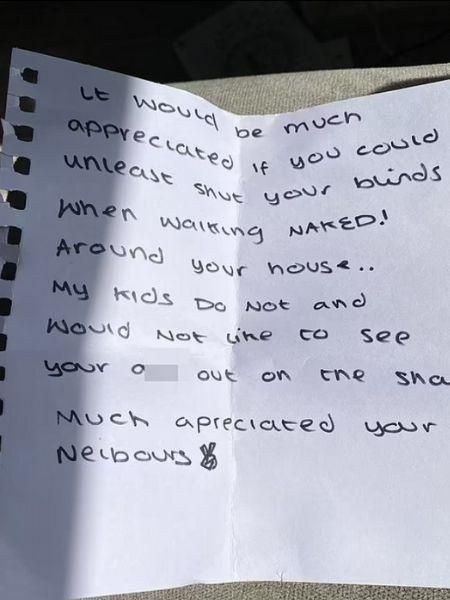 It would be much
appreciated if you could
unleast shut your blinds
When walking NAKED!
Around your house..
My kids Do Not and
Would Not like to see
your out on the
Much apreciated your
Neibours